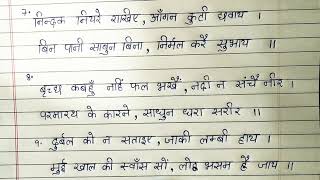 ७. निन्दक नियरे राखिए, आँगन कुटी छवाय ।
बिन पानी साबुन बिना, निर्मल करै सुभाय ॥
८.
बृच्छ कबहुँ नहिं फल भखैं, नदी न संचैं नीर ।
परमारथ के कारने, साधुन धरा सरीर ॥
९. दुर्बल को न सताइए, जाकी लम्बी हाय ।
मुई खाल की स्वाँस सों, लोह भसम है जाय ॥